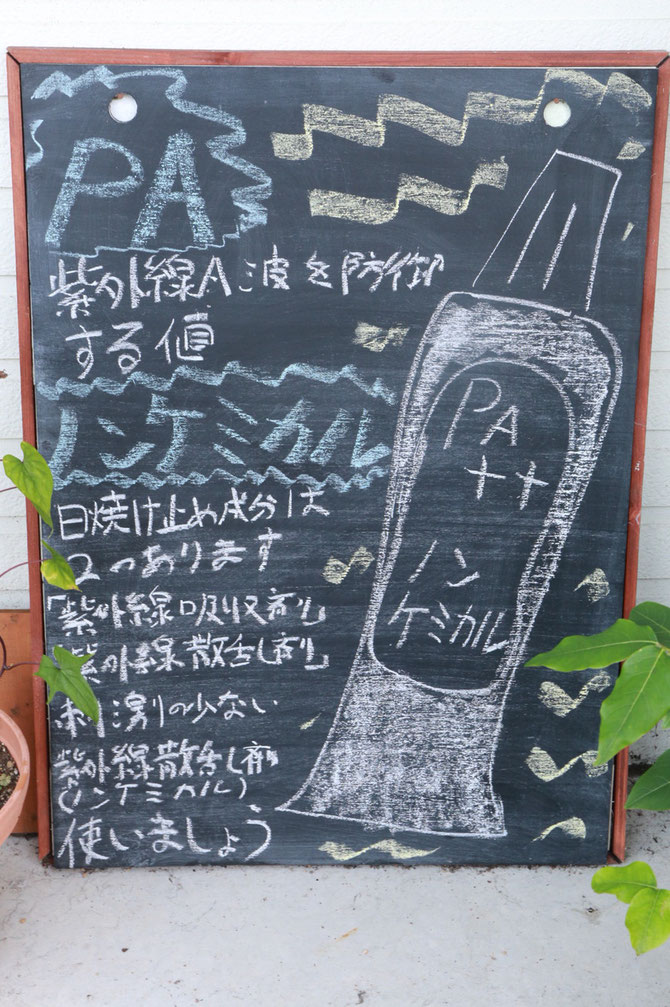 PA
紫外線A波を防御
する値
ノンケミカル
日焼け止め成分は
2つあります
「紫外線吸収剤」
「紫外線散乱剤」
刺激の少ない
紫外線散乱剤
(ノンケミカル)
使いましょう
PA
++
ノン
ケミカル